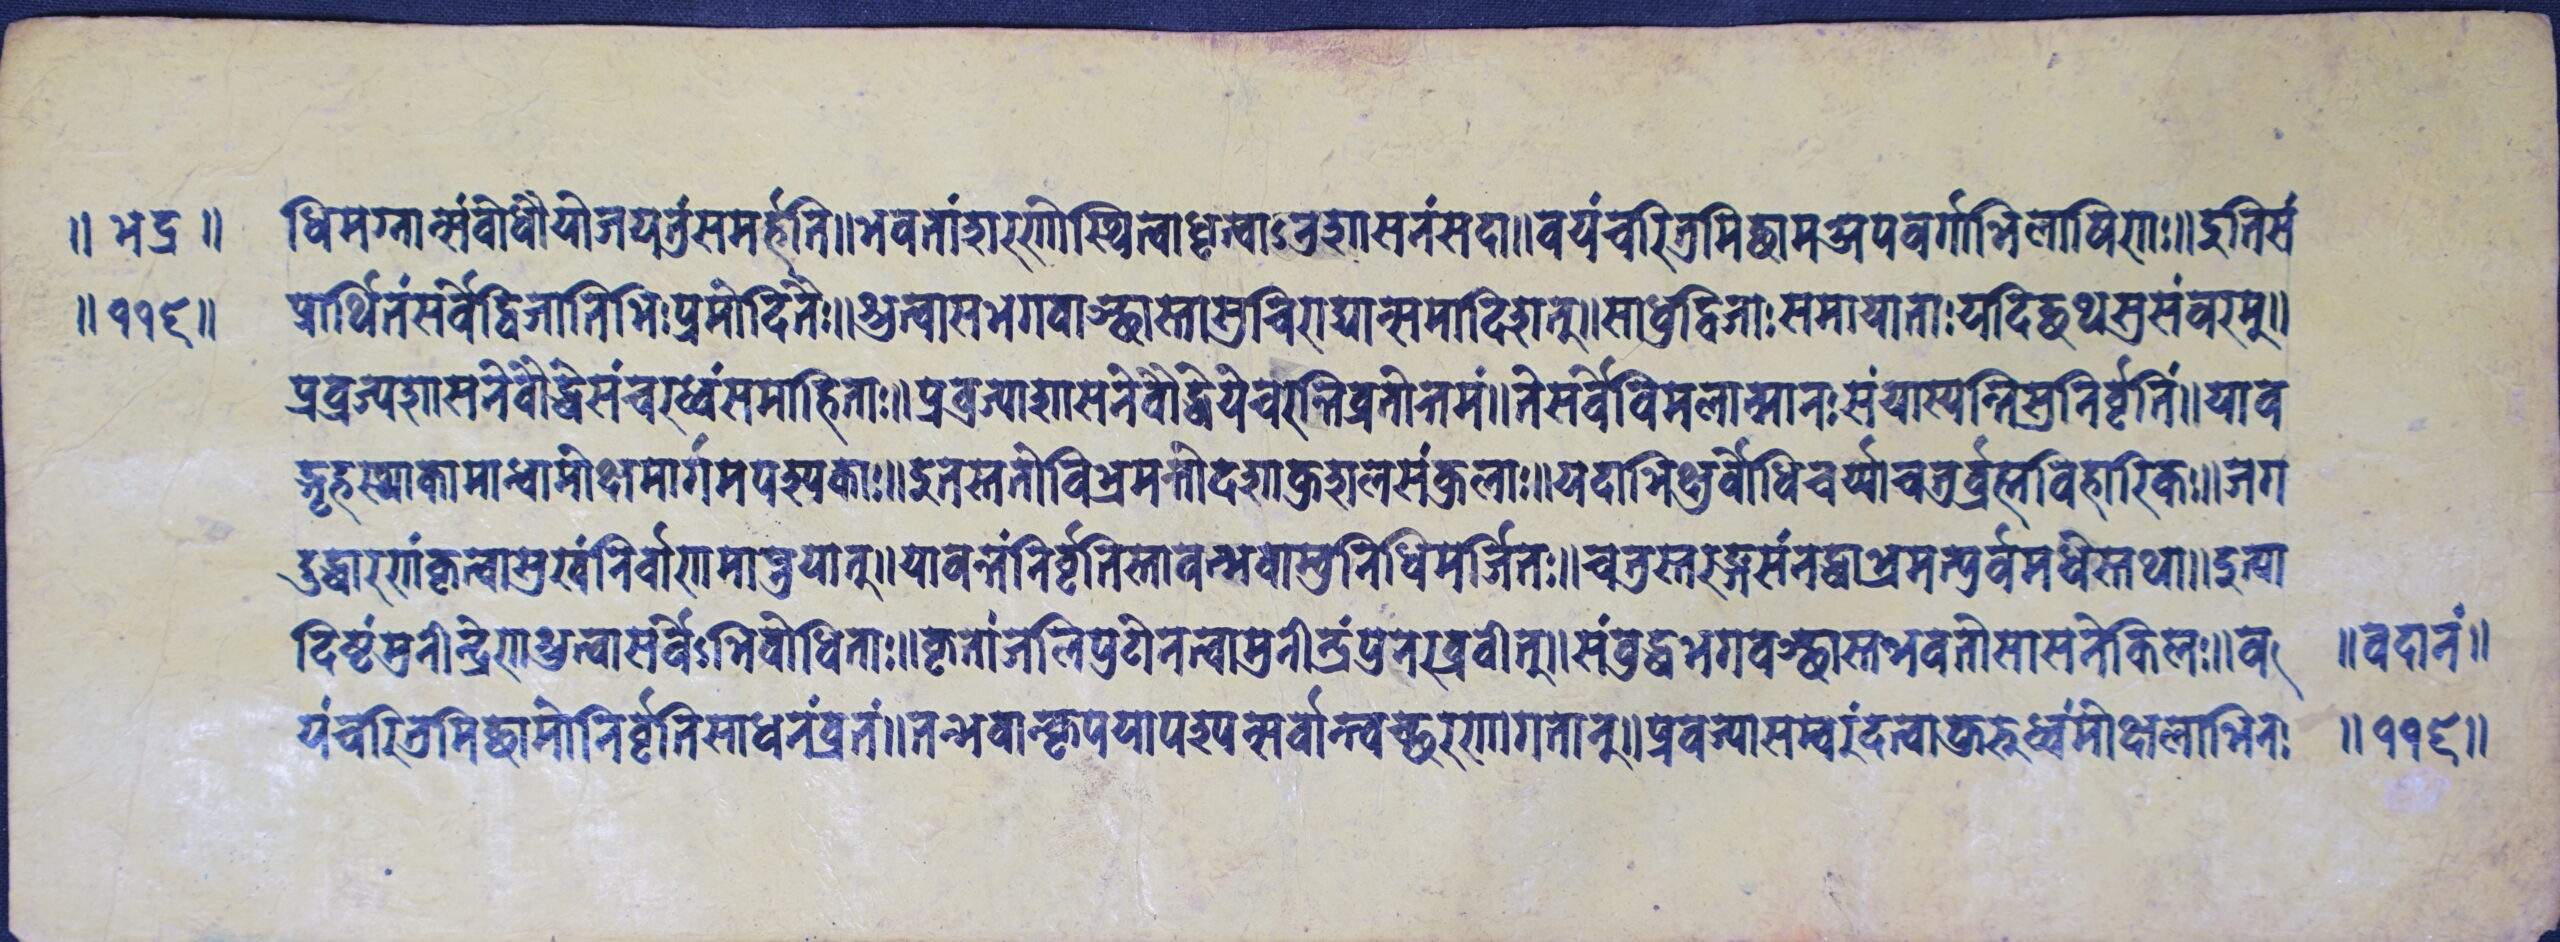 ॥ भद्र ॥ धिमग्नान्सर्वोधौयोजयतुंसमर्हति॥भवतांशरणेस्थित्वाधृत्वाऽनुशासनंसदा॥वयंचरितुमिछामअपवर्गाभिलाषिणः॥इतिसं
॥ ११९॥ प्रार्थितंसर्वेद्विजातिभिःप्रमोदितैः॥श्रुत्वासभगवाञ्छास्तासुचिराद्यान्समादिशत्॥साधुद्विजाःसमायाताःयदिछथसुसंवरम्॥
प्रव्रज्यशासनेवौद्धेसंचरध्वंसमाहिताः॥प्रव्रज्याशासनेवौद्धेयेचरन्तिव्रतोत्तमं॥तेसर्वेविमलात्मानःसंयास्यन्तिसुनिर्वृतिं॥याव
द्गृहस्थाकामान्धामोक्षमार्गमपश्यकाः॥इतस्ततोविभ्रमन्तोदशाकुशलसंकुलाः॥यदाभिक्षुर्वोधिचर्याचतुर्व्रह्मविहारिकः॥जग
दुद्धारणंकृत्वासुखंनिर्वाणमाप्नुयात्॥यावन्तंनिर्वृतिस्तावन्भवाम्बुनिधिमर्जितः॥चतुस्तरङ्गसंनद्धाभ्रमन्पुर्वमधेस्तथा॥इत्या
दिष्टंमुनीन्द्रेणश्रुत्वासर्वेऽभिवोधिताः॥कृतांजलिपुटोनत्वामुनीन्द्रंपुनरव्रवीत्॥संवुद्धभगवञ्छास्तभवतोसासनेकिलः॥व ॥वदानं॥
यंचरितुमिछामोनिर्वृतिसाधनंव्रतं॥तन्भवान्कृपयापश्यन्सर्वान्त्वच्छरणागतान्॥प्रवज्यासम्वरंदत्वाकुरुध्वंमोक्षलाभिनः ॥ ११९॥